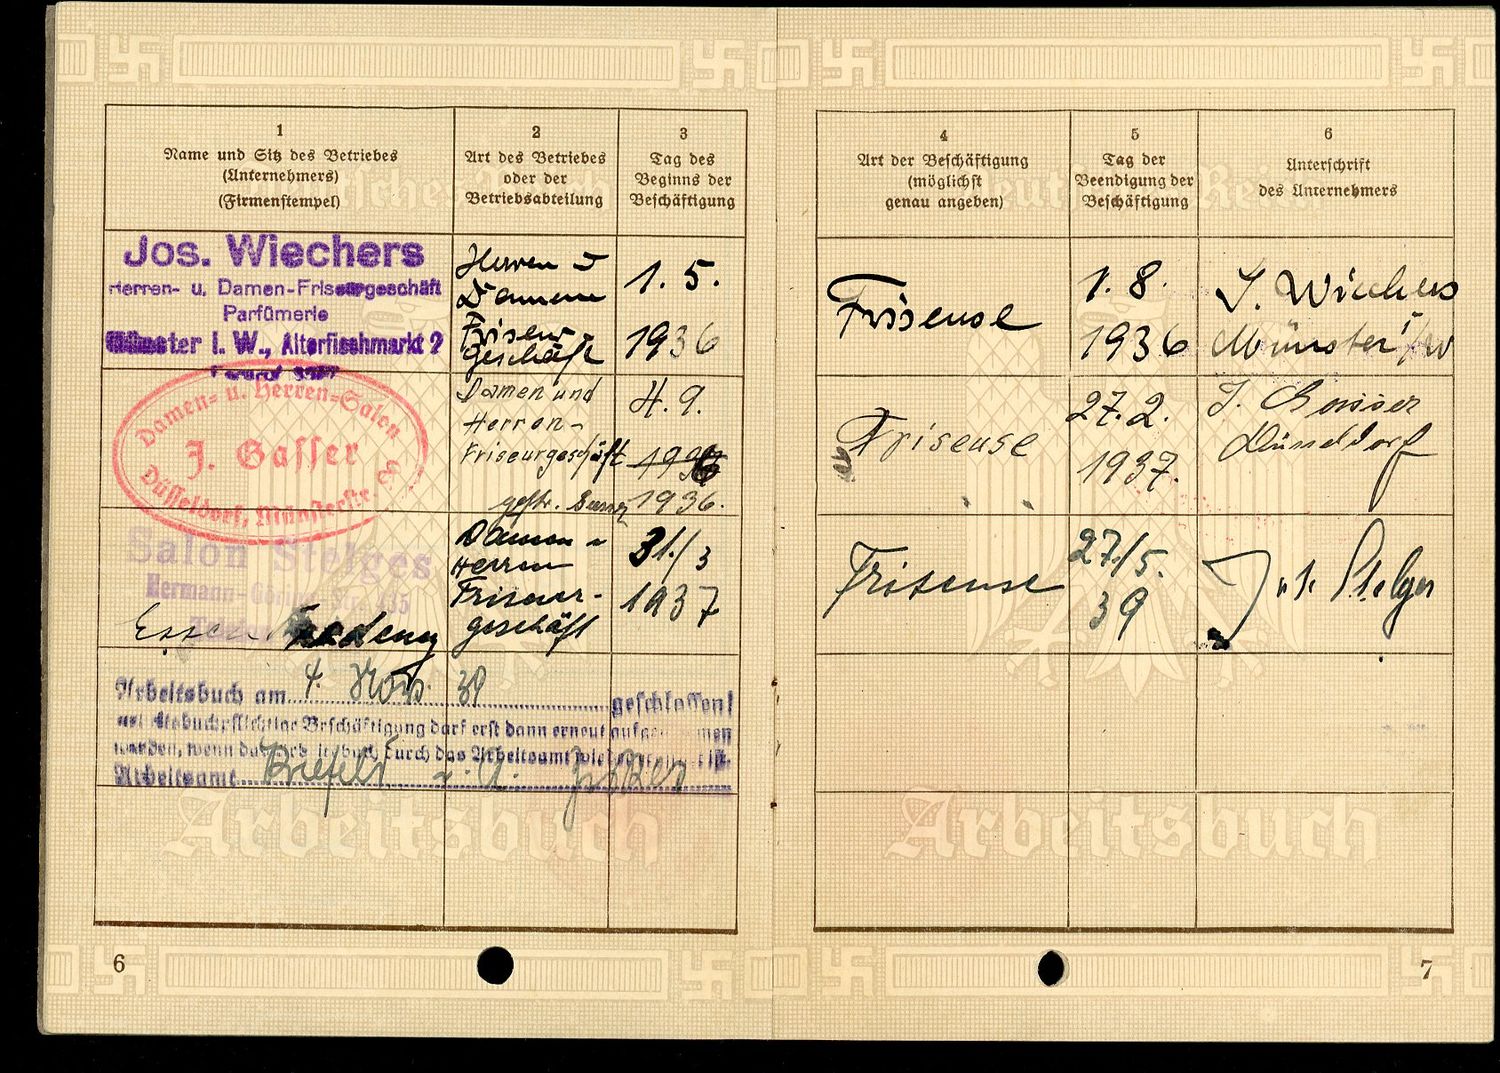 1
Name und Sitz des Betriebes
(Unternehmers)
(Firmenstempel)
2
Art des Betriebes
oder der
Betriebsabteilung
3
Tag des
Beginns der
Beschäftigung
Jos. Wiechers
Herren- u. Damen-Friseurgeschäft
Parfümerie
Münster i. W., Alterfischmarkt 2
Herren u
Damen
Friseur
geschäft
1. 5.
1936
Damen- u. Herren-Salon
J. Gasser
Düsseldorf, Münsterstr.
Damen und
Herren-
Friseurgeschäft
4. 9.
1936
1936.
Salon Stelges
Hermann-Göring-Str.
Essen
Damen u
Herren
Friseur-
geschäft
31./3
1937
Arbeitsbuch am 4. Nov. 39 geschlossen!
Arbeitsbuchpflichtige Beschäftigung darf erst dann erneut aufgenommen
werden, wenn das Arbeitsbuch durch das Arbeitsamt
Arbeitsamt Krefeld
Arbeitsbuch
6
4
Art der Beschäftigung
(möglichst
genau angeben)
5
Tag der
Beendigung der
Beschäftigung
6
Unterschrift
des Unternehmers
Friseuse
1. 8.
1936
J. Wiechers
Münster i/W
Friseuse
27. 2.
1937.
J. Gasser
Düsseldorf
Friseuse
27./5.
39
Stelges
Arbeitsbuch
7